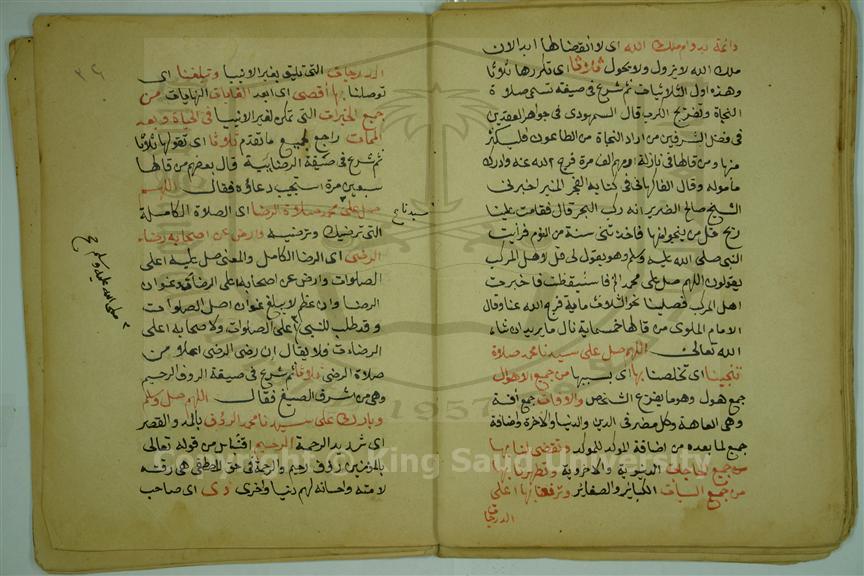 دائمة بدوام ملك الله اى لا انقضا لها ابدا لان
ملك الله لا يزول ولا يحول ثلاثا اى تكررها ثلاثا
وهذه اول الثلاثيات ثم شرع فى صيغة تسمى صلاة
النجاة وتفريج الكرب قال السمهودى فى جواهر العقدين
فى فضل الشرفين من اراد النجاة من الطاعون فليكثر
منها ومن قالها فى نازلة او مهم الف مرة فرج الله عنه وادرك
مأموله وقال الفاكهانى فى كتابه الفجر المنير اخبرنى
الشيخ صالح الضرير انه ركب البحر قال فقامت علينا
ريح قل من ينجو منها فاخذتنى سنة من النوم فرأيت
النبى صلى الله عليه وسلم وهو يقول لى قل لاهل المركب
يقولون اللهم صل على محمد الخ فاستيقظت فاخبرت
اهل المركب فصلينا نحو الثلاثماية فرج الله عنا وقال
الامام الملوى من قالها خمسماية نال ما يريد ان شاء
الله تعالى اللهم صل على سيدنا محمد صلاة
تنجينا اى تخلصنا بها اى بسببها من جميع الاهوال
جمع هول وهو ما يفزع الشخص والآفات جمع آفة
وهى العاهة وكل مضر فى الدين والدنيا والاخرة واضافة
جمع لما بعده من اضافة المؤكد للمؤكد وتقضى لنا بها
من جميع الحاجات الدنيوية والاخروية وتطهرنا بها
من جميع السيأت الكبائر والصغائر وترفعنا بها اعلى
الدرجات
٣٦
الدرجات التى تليق بغير الانبيا وتبلغنا اى
توصلنا بها أقصى اى ابعد الغايات النهايات من
جميع الخيرات التى تمكن لغير الانبيا فى الحياة وبعد
الممات راجع لجميع ما تقدم ثلاثا اى تقولها ثلاثا
ثم شرع فى صيغة الرضائية قال بعضهم من قالها
سبعين مرة استجيب دعاؤه فقال اللهم
صل على محمد صلاة الرضا اى الصلاة الكاملة
سيدنا صح
التى ترضيك وترضيه وارض عن اصحابه رضاء
الرضى اى الرضا الكامل والمعنى صل عليه اعلى
الصلوات وارض عن اصحابه اعلى الرضا
الرضا وان عظم لا يبلغ عنوان اصل الصلوات
وقد طلب للنبى اعلى الصلوات ولاصحابه اعلى
صلى الله عليه وسلم صح
الرضاءت فلا يقال إن رضى الرضى اعلا من
صلاة الرضى ثلاثا ثم شرع فى صيغة الروف الرحيم
وهى من اشرف الصيغ فقال اللهم صل وسلم
وبارك على سيدنا محمد الرؤف بالمد والقصر
اى شديد الرحمة الرحيم اقتباس من قوله تعالى
بالمؤمنين رؤف رحيم والرحمة فى حق المصطفى هى رقته
لامته واحسانه لهم دنيا واخرى ذى اى صاحب